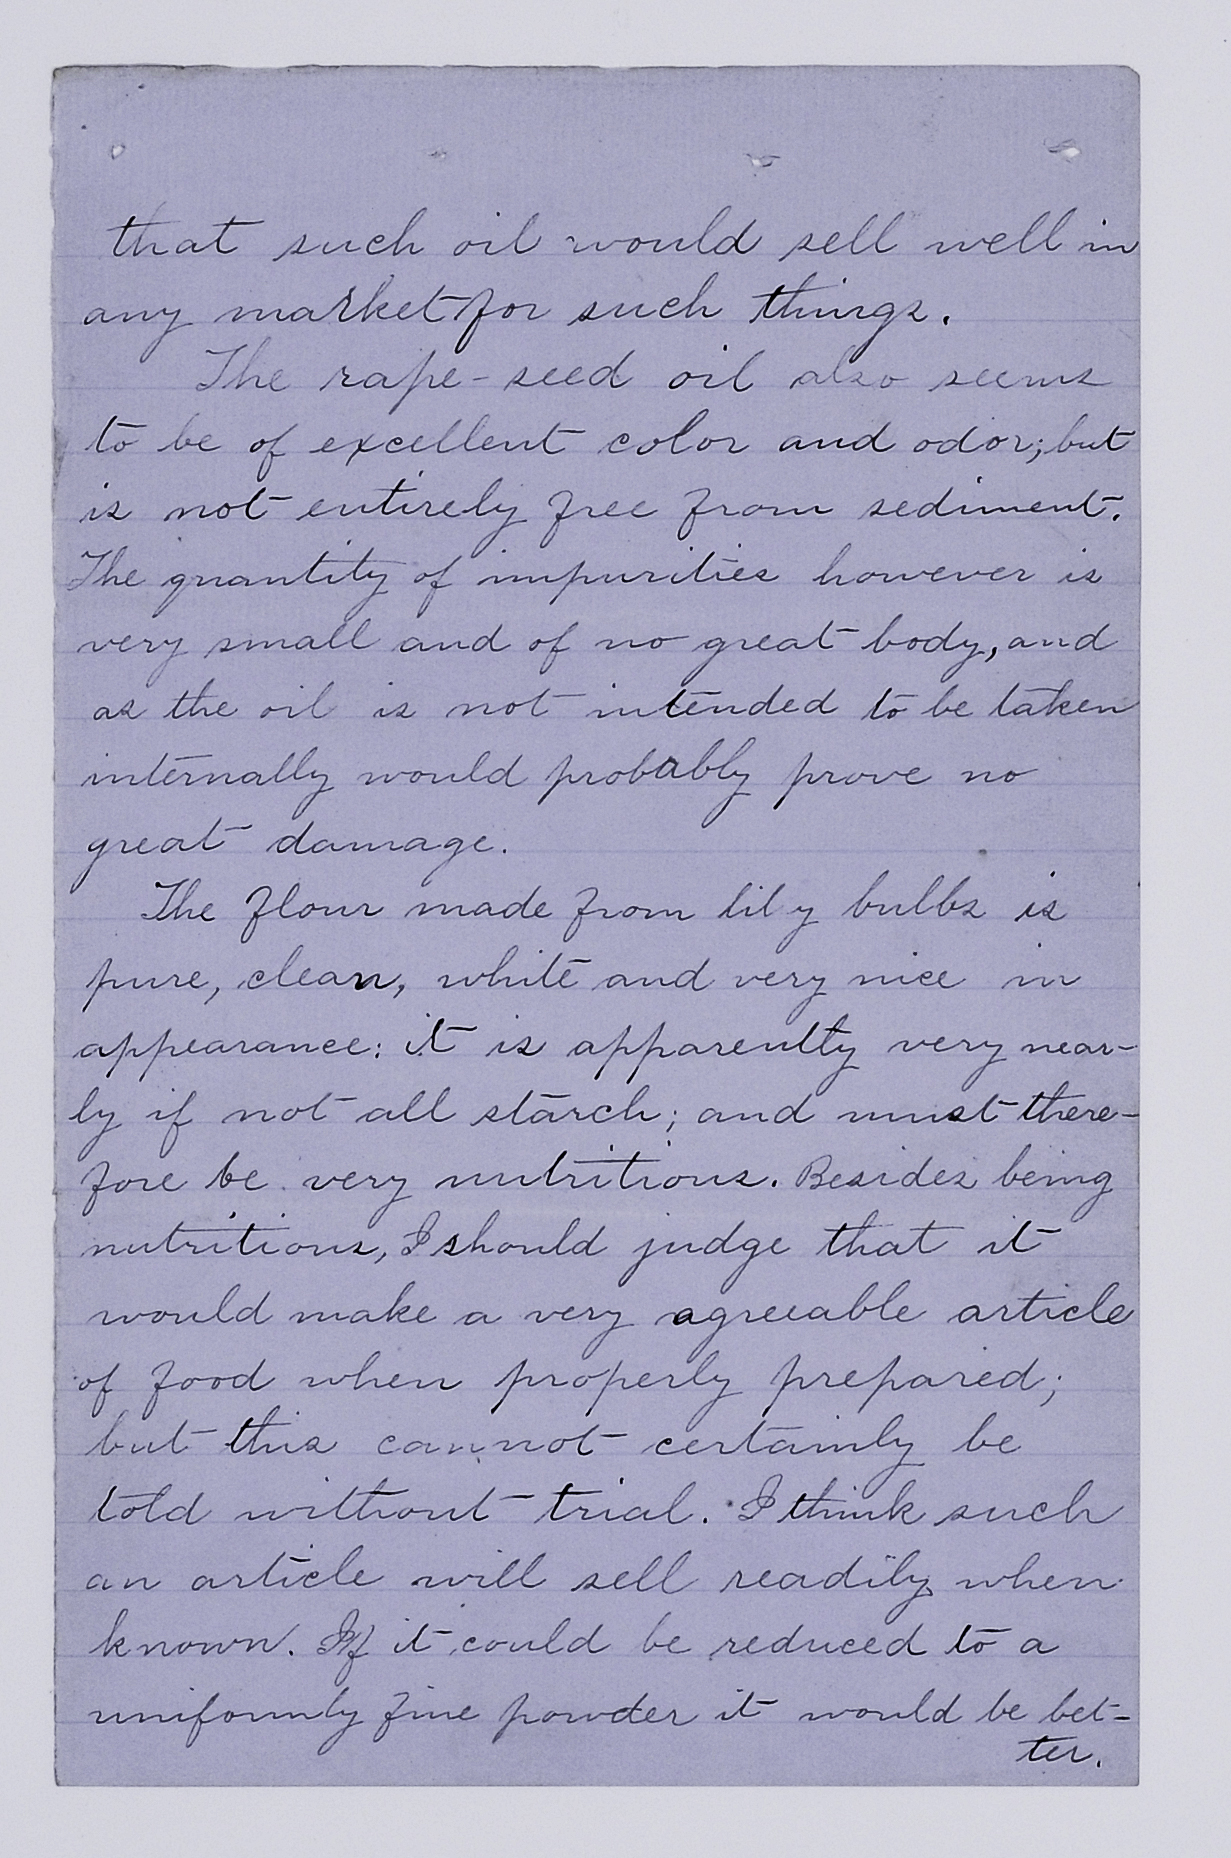 that such oil would sell well in
any market for such things.
The rape-seed oil also seems
to be of excellent color and odor; but
is not entirely free from sediment.
The quantity of impurities however is
very small and of no great body, and
as the oil is not intended to be taken
internally would probably prove no
great damage.
The flour made from lily bulbs is
pure, clean, white and very nice in
appearance: it is apparently very near-
ly if not all starch; and must there-
fore be very nutritious. Besides being
nutritious, I should judge that it
would make a very agreeable article
of food when properly prepared;
but this cannot certainly be
told without trial. I think such
an article will sell readily when
known. If it could be reduced to a
uniformly fine powder it would be bet-
ter.